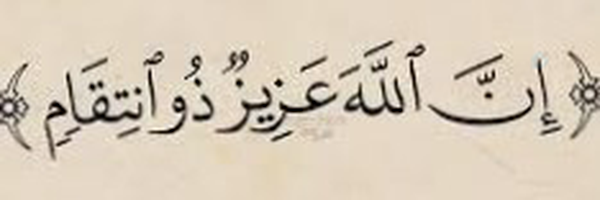 إِنَّ ٱللَّهَ عَزِيزٌ ذُو ٱنتِقَامٍ